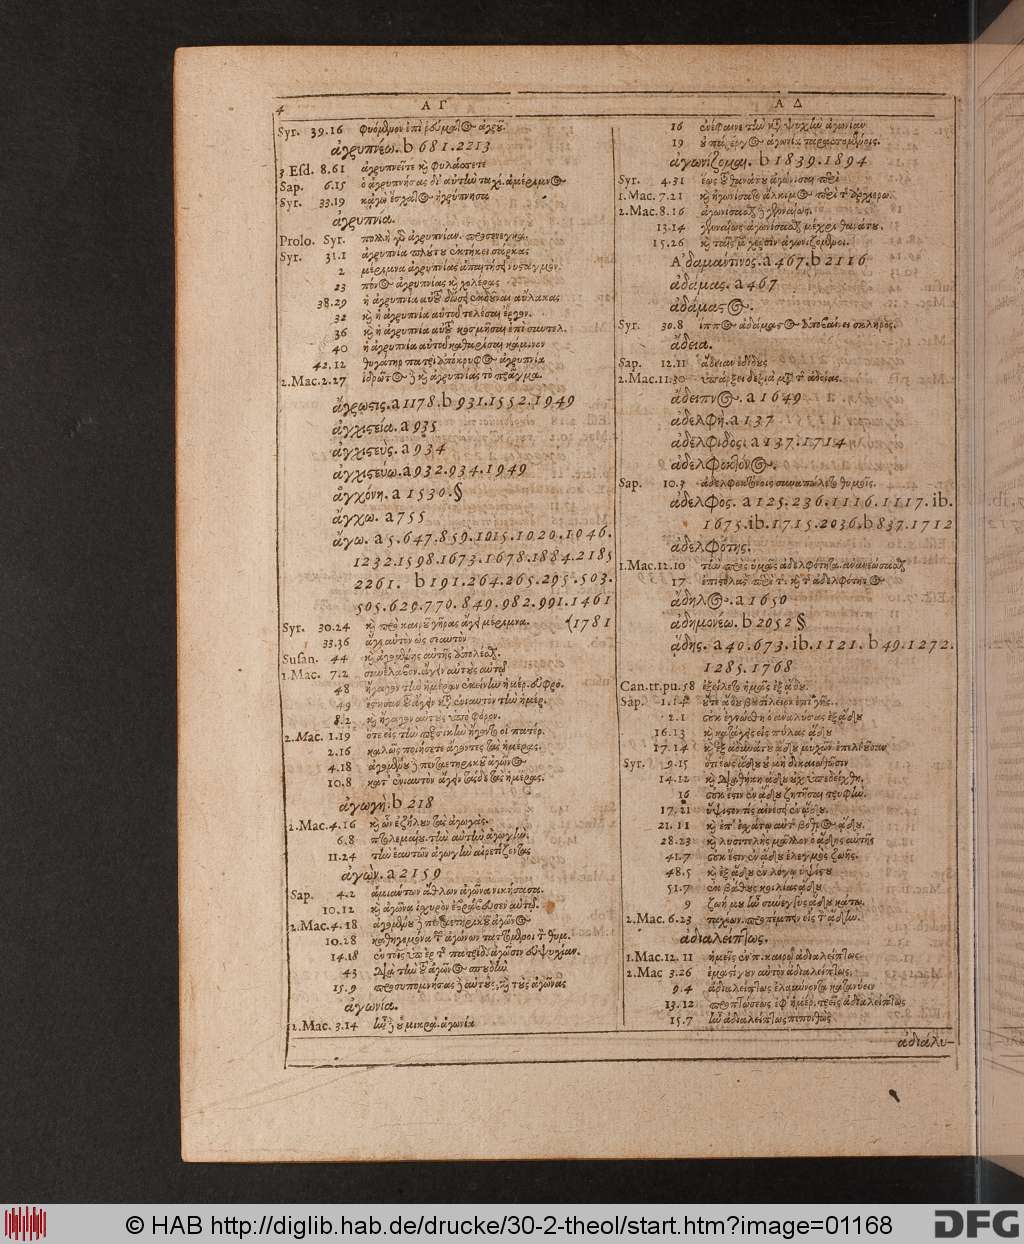 4
Α Γ
Α Δ
Syr. 39.16
ἀγρυπνέω. b 681.2213
3 Esd. 8.61 ἀγρυπνεῖτε καὶ φυλάσσετε
Sap. 6.15 ὁ ἀγρυπνήσας δι' αὐτὴν ταχέως ἀμέριμνος
Syr. 33.19 κἀγὼ ἔσχατος ἠγρύπνησα
ἀγρυπνία.
Prolo. Syr. πολλὴν γὰρ ἀγρυπνίαν. προσενεγκ.
Syr. 31.1 ἀγρυπνία πλούτου ἐκτήκει σάρκας
2 μέριμνα ἀγρυπνίας ἀπαιτήσει νυσταγμόν.
23 πόνος ἀγρυπνίας καὶ χολέρας
38.29 ἡ ἀγρυπνία αὐτοῦ δώσει ἐκδοῦναι αὔλακας
32 καὶ ἡ ἀγρυπνία αὐτοῦ τελέσαι ἔργον.
36 καὶ ἡ ἀγρυπνία αὐτοῦ κοσμῆσαι ἐπὶ συντελ.
40 ἡ ἀγρυπνία αὐτοῦ καθαρίσαι κάμινον
42.12 θυγάτηρ πατρὶ ἀπόκρυφος ἀγρυπνία
2.Mac.2.27 ἱδρῶτος δὲ καὶ ἀγρυπνίας τὸ πρᾶγμα.
ἄγρωστις. a 1178. b 931.1552.1949
ἀγχιστεία. a 935
ἀγχιστεύς. a 934
ἀγχιστεύω. a 932.934.1949
ἀγχόνη. a 1530. §
ἄγχω. a 755
ἄγω. a 5.647.859.1015.1020.1046.
1232.1598.1673.1678.1884.2185
2261. b 191.264.265.295.503.
505.629.770.849.982.991.1461
Syr. 30.24 καὶ πρὸ καιροῦ γῆρας ἄγει μέριμνα. (1781
33.36 ἄγε αὐτὸν ὡς σεαυτὸν
Susan. 44
1.Mac. 7.2 συνέλαβον. ἄγειν αὐτοὺς αὐτῷ
48 ἤγαγον τὴν ἡμέραν ἐκείνην ἡμέρ. εὐφρο.
49 ἔστησαν τοῦ ἄγειν κατ' ἐνιαυτὸν τὴν ἡμέρ.
8.2 καὶ ἤγαγον αὐτοὺς ὑπὸ φόρον.
2.Mac. 1.19 ὅτε εἰς τὴν περσικὴν ἤγοντο οἱ πατέρ.
2.16 καλῶς ποιήσετε ἄγοντες τὰς ἡμέρας.
4.18 ἀγομένου δὲ πενταετηρικοῦ ἀγῶνος
10.8 κατ' ἐνιαυτὸν ἄγειν τάσδε τὰς ἡμέρας.
ἀγωγή. b 218
2.Mac.4.16 καὶ ὧν ἐζήλουν τὰς ἀγωγάς.
6.8 πτολεμαίου. τὴν αὐτὴν ἀγωγὴν.
11.24 τὴν ἑαυτῶν ἀγωγὴν αἱρετίζοντας
ἀγών. a 2159
Sap. 4.2 ἀμιάντων ἄθλων ἀγῶνα νικήσασα.
10.12 καὶ ἀγῶνα ἰσχυρὸν ἐβράβευσεν αὐτῷ.
2.Mac.4.18 ἀγομένου δὲ πενταετηρικοῦ ἀγῶνος
10.28 καθηγεμόνα τῶν ἀγώνων ταττόμενοι τὸν θυμ.
14.18 ἐν τοῖς ὑπὲρ τῆς πατρίδος ἀγῶσιν εὐψυχίαν.
43 διὰ τὴν τοῦ ἀγῶνος σπουδὴν
15.9 προσυπομνήσας δὲ αὐτοὺς καὶ τοὺς ἀγῶνας
ἀγωνία.
2.Mac. 3.14 ἦν δὲ οὐ μικρὰ. ἀγωνία
16 ἐνέφαινε τὴν κατὰ ψυχὴν ἀγωνίαν
19
ἀγωνίζομαι. b 1839.1894
Syr. 4.31 ἕως τοῦ θανάτου ἀγώνισαι περὶ
1.Mac. 7.21 καὶ ἠγωνίσατο ἄλκιμος περὶ τῆς ἀρχιερω.
2.Mac.8.16 ἀγωνίσασθαι δὲ γενναίως.
13.14 γενναίως ἀγωνίσασθαι μέχρι θανάτου.
15.26 καὶ ταῖς μὲν χερσὶν ἀγωνιζόμενοι.
Ἀδαμάντινος. a 467. b 2116
ἀδάμας. a 467
ἀδάμαστος.
Syr. 30.8 ἵππος ἀδάμαστος ἀποβαίνει σκληρός.
ἄδεια.
Sap. 12.11 ἄδειαν ἐδίδους
2.Mac.11.30 ὑπάρξει δεξιὰ μετὰ τῆς ἀδείας.
ἄδειπνος. a 1649
ἀδελφή. a 137
ἀδελφιδός. a 137.1714
ἀδελφοκτόνος.
Sap. 10.3 ἀδελφοκτόνοις συναπώλετο θυμοῖς.
ἀδελφός. a 125.236.1116.1117. ib.
1675. ib. 1715.2036. b 837.1712
ἀδελφότης.
1.Mac.12.10 τὴν πρὸς ὑμᾶς ἀδελφότητα. ἀνανεώσασθαι
17 ἐπιστολὰς περὶ τ. καὶ τ. ἀδελφότητος
ἄδηλος. a 1650
ἀδημονέω. b 2052 §
ᾅδης. a 40.673. ib. 1121. b 49.1272.
1285.1768
Can.tr.pu.58 ἐξείλετο ἡμᾶς ἐξ ᾅδου.
Sap. 1.14 οὔτε ᾅδου βασίλειον ἐπὶ γῆς.
2.1 οὐκ ἐγνώσθη ὁ ἀναλύσας ἐξ ᾅδου
16.13 καὶ κατάγεις εἰς πύλας ᾅδου
17.14
Syr. 9.15 ὅτι ἕως ᾅδου οὐ μὴ δικαιωθῶσιν
14.12 καὶ διαθήκη ᾅδου οὐχ ὑπεδείχθη.
16 οὐκ ἔστιν ἐν ᾅδου ζητῆσαι τρυφὴν.
17.21 ὑψίστῳ τίς αἰνέσει ἐν ᾅδου.
21.11 καὶ ἐπ' ἐσχάτων αὐτ. βόθρος ᾅδου.
28.23 καὶ λυσιτελὴς μᾶλλον ὁ ᾅδης αὐτῆς
41.7 οὐκ ἔστιν ἐν ᾅδου ἐλεγμὸς ζωῆς.
48.5 καὶ ἐξ ᾅδου ἐν λόγῳ ὑψίστου
51.7 ἐκ βάθους κοιλίας ᾅδου
9 ζωή μου ἦν σύνεγγυς ᾅδου κάτω.
2.Mac. 6.23 ταχέων. προπέμπειν εἰς τὸν ᾅδην.
ἀδιαλείπτως.
1.Mac.12.11 ἡμεῖς ἐν π. καιρῷ ἀδιαλείπτως
2.Mac 3.26 ἐμαστίγουν αὐτὸν ἀδιαλείπτως.
9.4 ἀδιαλείπτως ἐλαύνοντα κατανύειν
13.12 προπτώσεως ἐφ' ἡμέρ. τρεῖς ἀδιαλείπτως
15.7 ἦν ἀδιαλείπτως πεποιθὼς
ἀδιάλυ-
© HAB http://diglib.hab.de/drucke/30-2-theol/start.htm?image=01168
DFG